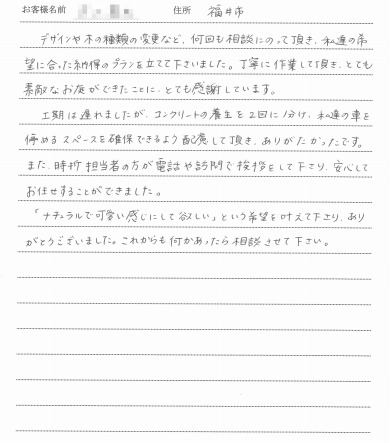 お客様名前 住所 福井市
デザインや木の種類の変更など、何回も相談にのって頂き、私達の希
望に合った納得のプランを立てて下さいました。丁寧に作業して頂き、とても
素敵なお庭ができたことに、とても感謝しています。
工期は遅れましたが、コンクリートの養生を2回に分け、私達の車を
停めるスペースを確保できるよう配慮して頂き、ありがたかったです。
また、時折担当者の方が電話や訪問で挨拶をして下さり、安心して
お任せすることができました。
「ナチュラルで可愛い感じにして欲しい」という希望を叶えて下さり、あり
がとうございました。これからも何かあったら相談させて下さい。